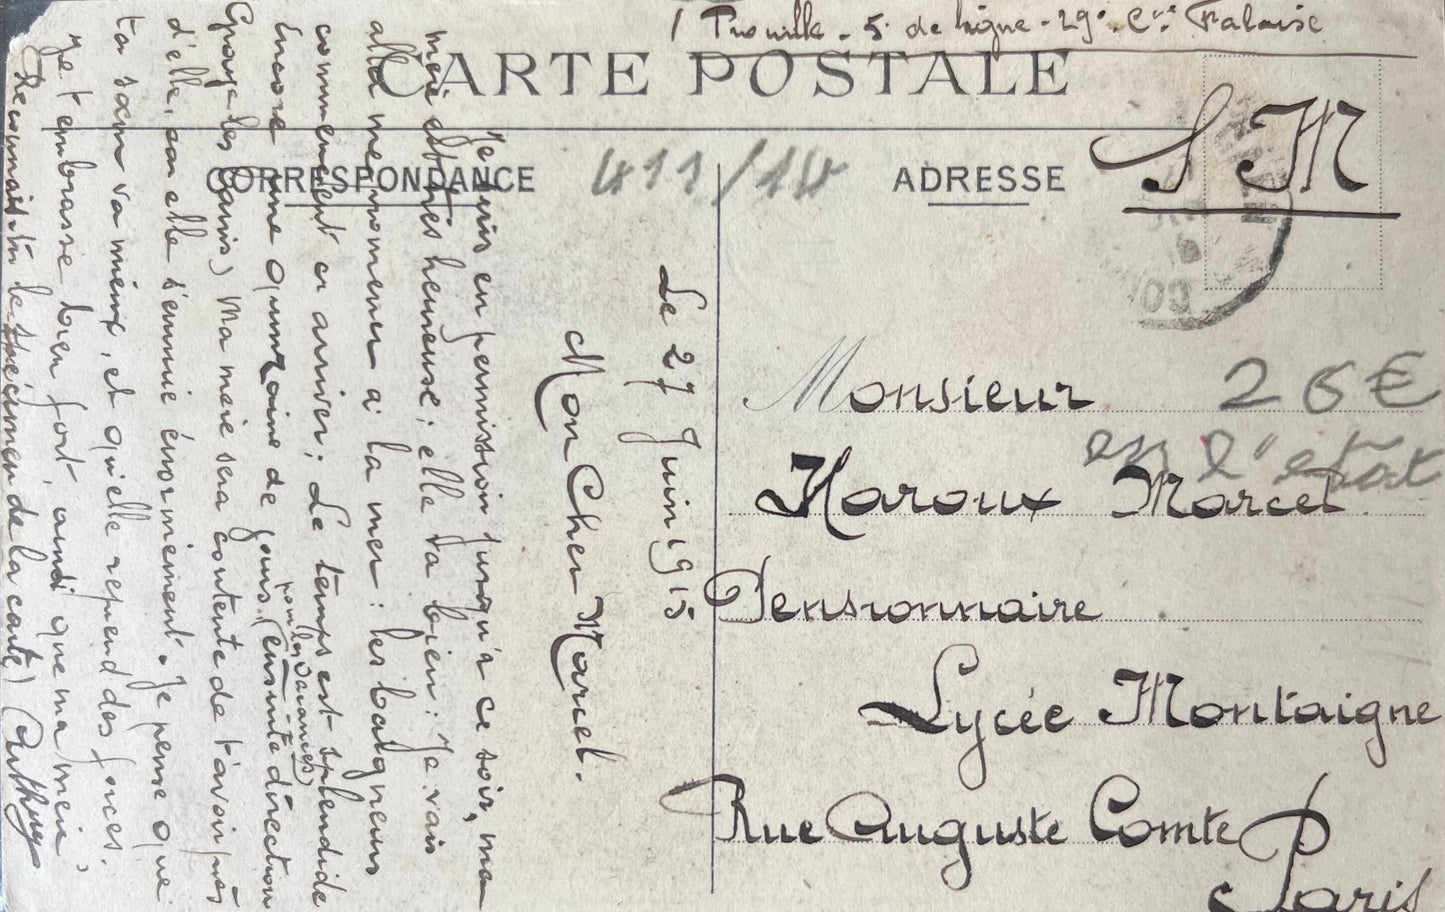 Trouville - 5e de ligne - 29e Cie Falaise
CARTE POSTALE
CORRESPONDANCE
411/14
ADRESSE
S M
Monsieur
26€
en l'état
Haroux Marcel
Pensionnaire
Lycée Montaigne
Rue Auguste Comte
Paris
Le 27 Juin 1915
Mon Cher Marcel.
Je suis en permission jusqu'à ce soir, ma
mère est très heureuse ; elle va bien : Je vais
aller me promener à la mer : les baigneurs
commencent à arriver ; Le temps est splendide
Encore une quinzaine de jours (ensuite direction
pour les vacances)
les bains) Ma mère sera contente de t'avoir près
d'elle, car elle s'ennuie énormément. Je pense que
ta sœur va mieux, et qu'elle reprend des forces.
Je t'embrasse bien fort, ainsi que ma mère,
Reconnais-tu le spécimen de la carte)